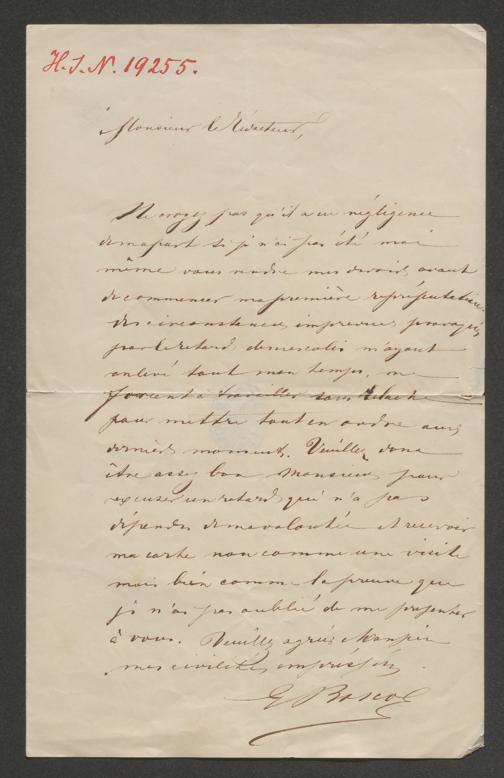 H. I. N. 19255.
Monsieur le Rédacteur,
Ne croyez pas qu'il a eu négligence
de ma part si je n'ai pas été moi
même vous rendre mes devoirs avant
de commencer ma première représentation
des circonstances imprevues provoquées
par le retard de mes colis m'ayant
enlevé tout mon temps, me
forcent a travailler sans relache
pour mettre tout en ordre aux
derniers moments. Veuillez donc
être assez bon Monsieur pour
excuser un retard qui n'a pas
dépendu de ma volontée et recevoir
ma carte non comme une visite
mais bien comme la preuve que
je n'ai pas oublié de me présenter
à vous. Veuillez agréer Monsieur
mes civilités empressées
Bosco